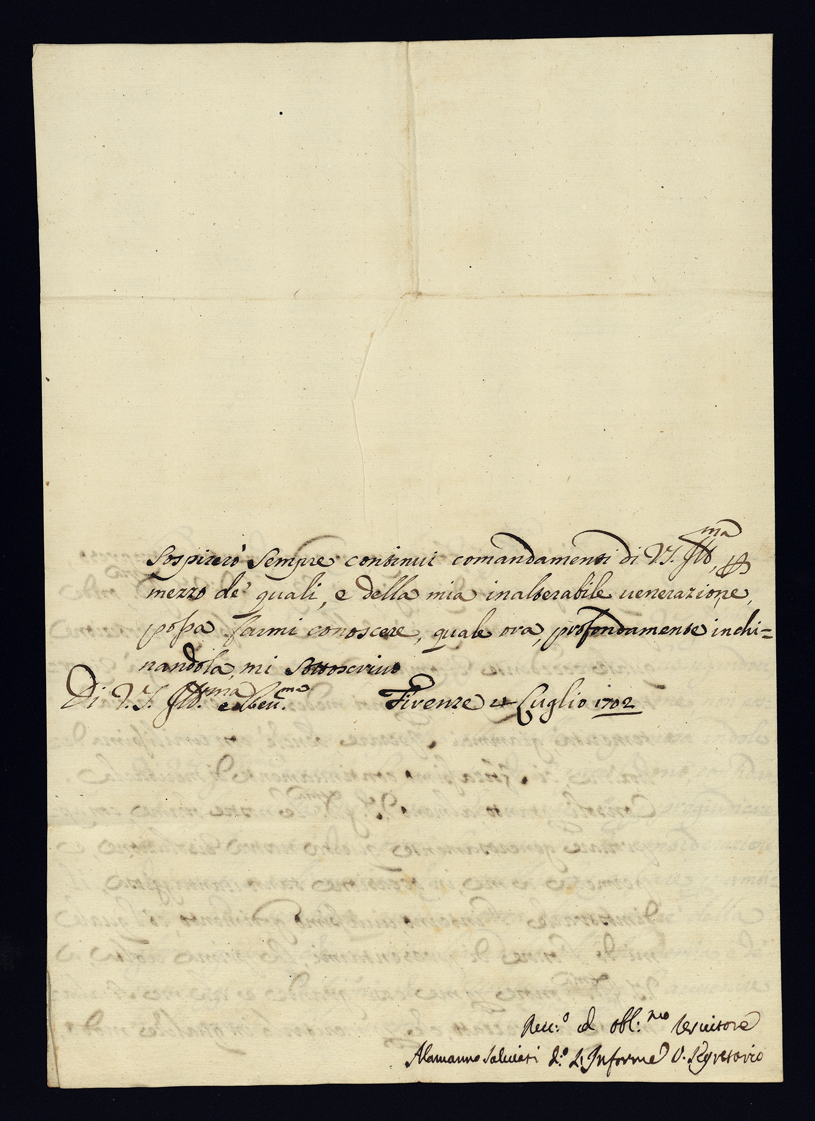 Sospirerò sempre continui comandamenti di V. S. Ill.ma
mezzo de' quali, e della mia inalterabile venerazione,
possa farmi conoscere, quale ora, profondamente inchi=
nandola, mi sottoscrivo
Di V. S. Ill.ma e Rev.ma Firenze Luglio 1702
ed obl.mo servitore
Alamanno Salviati d.o L'Informe V. Segretario